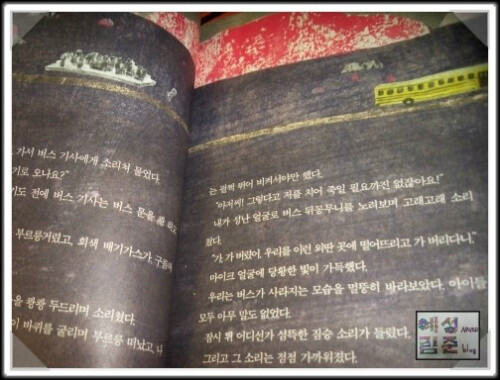 가서 버스 기사에게 소리쳐 물었다.
기로 오나요?"
기도 전에 버스 기사는 버스 문을
부르릉거렸고, 회색 배기가스가
을 쾅쾅 두드리며 소리쳤다.
이 바퀴를 굴리며 부르릉 떠났고, 나
는 펄쩍 뛰어 비켜서야만 했다.
"아저씨! 그렇다고 저를 치어 죽일 필요까진 없잖아요!"
내가 성난 얼굴로 버스 뒤꽁무니를 노려보며 고래고래 소리
쳤다.
"가, 가 버렸어. 우리를 이런 외딴 곳에 떨어뜨리고 가 버리다니."
마이크 얼굴에 당황한 빛이 가득했다.
우리는 버스가 사라지는 모습을 멀뚱히 바라보았다. 아이들
모두 아무 말도 없었다.
잠시 뒤 어디선가 섬뜩한 짐승 소리가 들렸다.
그리고 그 소리는 점점 가까워졌다.
예성
림준
blog